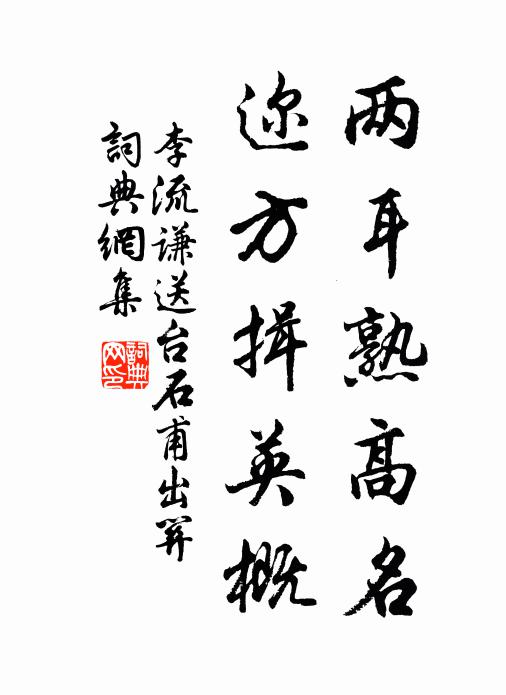 两耳熟高名
迩方揖英概
李流谦送台石甫出
詞典網集
詞典网印